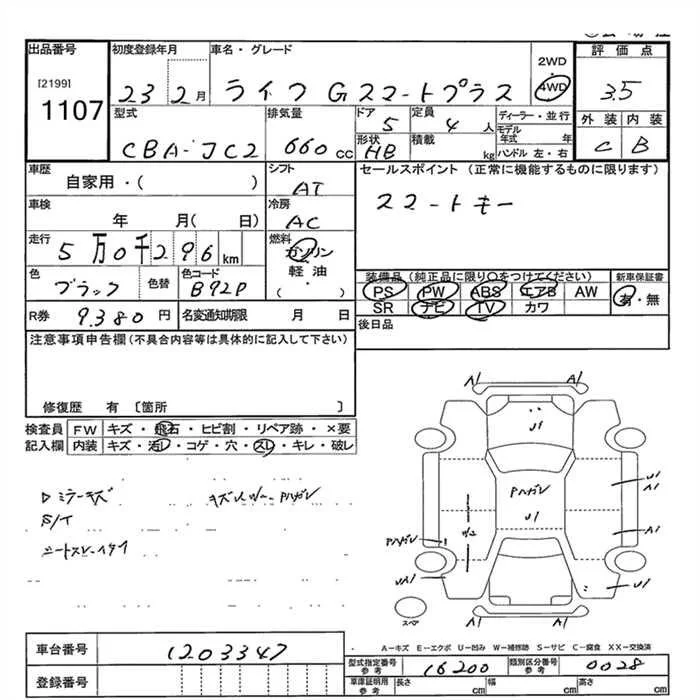 出品番号 初度登録年月 車名・グレード 2WD 評価点
[2199]
1107
23 2月 ライフ Gスマートプラス 4WD 3.5
型式 排気量 ドア 定員 ディーラー・並行 外装 内装
CBA-JC2 660cc 5 4人 モデル年式 年
形状 積載
HB kg ハンドル 左・右 C B
車歴 シフト セールスポイント (正常に機能するものに限ります)
自家用・( ) AT スマートキー
車検 冷房
年 月( 日) AC
走行 燃料
5万0千296km ガソリン
軽油
( )
色 色替 色コード 装備品 (純正品に限り○をつけてください) 新車保証書
ブラック B92P PS PW ABS エアB AW 有・無
SR ナビ TV カワ
R券 9.380円 名変通知期限 月 日 後日品
注意事項申告欄(不具合内容等は具体的に記入して下さい)
修復歴 有 〔箇所 〕
検査員 FW キズ・飛石・ヒビ割・リペア跡・×要
記入欄 内装 キズ・汚レ・コゲ・穴・スレ・キレ・破レ
A1 A1
U1
Dミラーキズ
PハガレU1
U1
A1
A1
Pハガレ
UA1
U1
スペア
A1 A1
車台番号 1203347
A-キズ E-エクボ U-凹み W-補修跡 S-サビ C-腐食 XX-交換済
型式指定番号 参考 16200 類別区分番号 参考 0028
登録番号 車庫証明用 参考 長さ cm 幅 cm 高さ cm